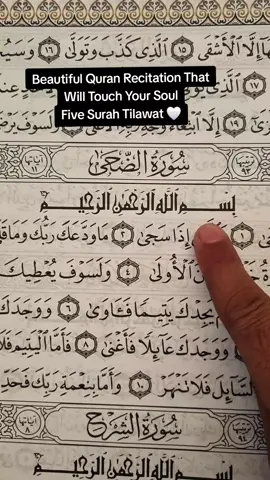 Beautiful Quran Recitation That
Will Touch Your Soul
Five Surah Tilawat 🤍
ٱلْأَشْقَى ١٥ ٱلَّذِى كَذَّبَ وَتَوَلَّىٰ ١٦
١٧
١٩ إِلَّا ٱبْتِغَآءَ وَجْهِ
سُورَةُ الضُّحَىٰ
بِسْمِ ٱللَّهِ ٱلرَّحْمَٰنِ ٱلرَّحِيمِ
١ إِذَا سَجَىٰ ٢ مَا وَدَّعَكَ رَبُّكَ وَمَا
ٱلْأُولَىٰ ٤ وَلَسَوْفَ يُعْطِيكَ
يَجِدْكَ يَتِيمًا فَـَٔاوَىٰ ٦ وَوَجَدَكَ
وَوَجَدَكَ عَآئِلًا فَأَغْنَىٰ ٨ فَأَمَّا ٱلْيَتِيمَ فَلَا
ٱلسَّآئِلَ فَلَا تَنْهَرْ ١٠ وَأَمَّا بِنِعْمَةِ رَبِّكَ فَحَدِّثْ
سُورَةُ الشَّرْحِ
بِسْمِ ٱللَّهِ ٱلرَّحْمَٰنِ ٱلرَّحِيمِ